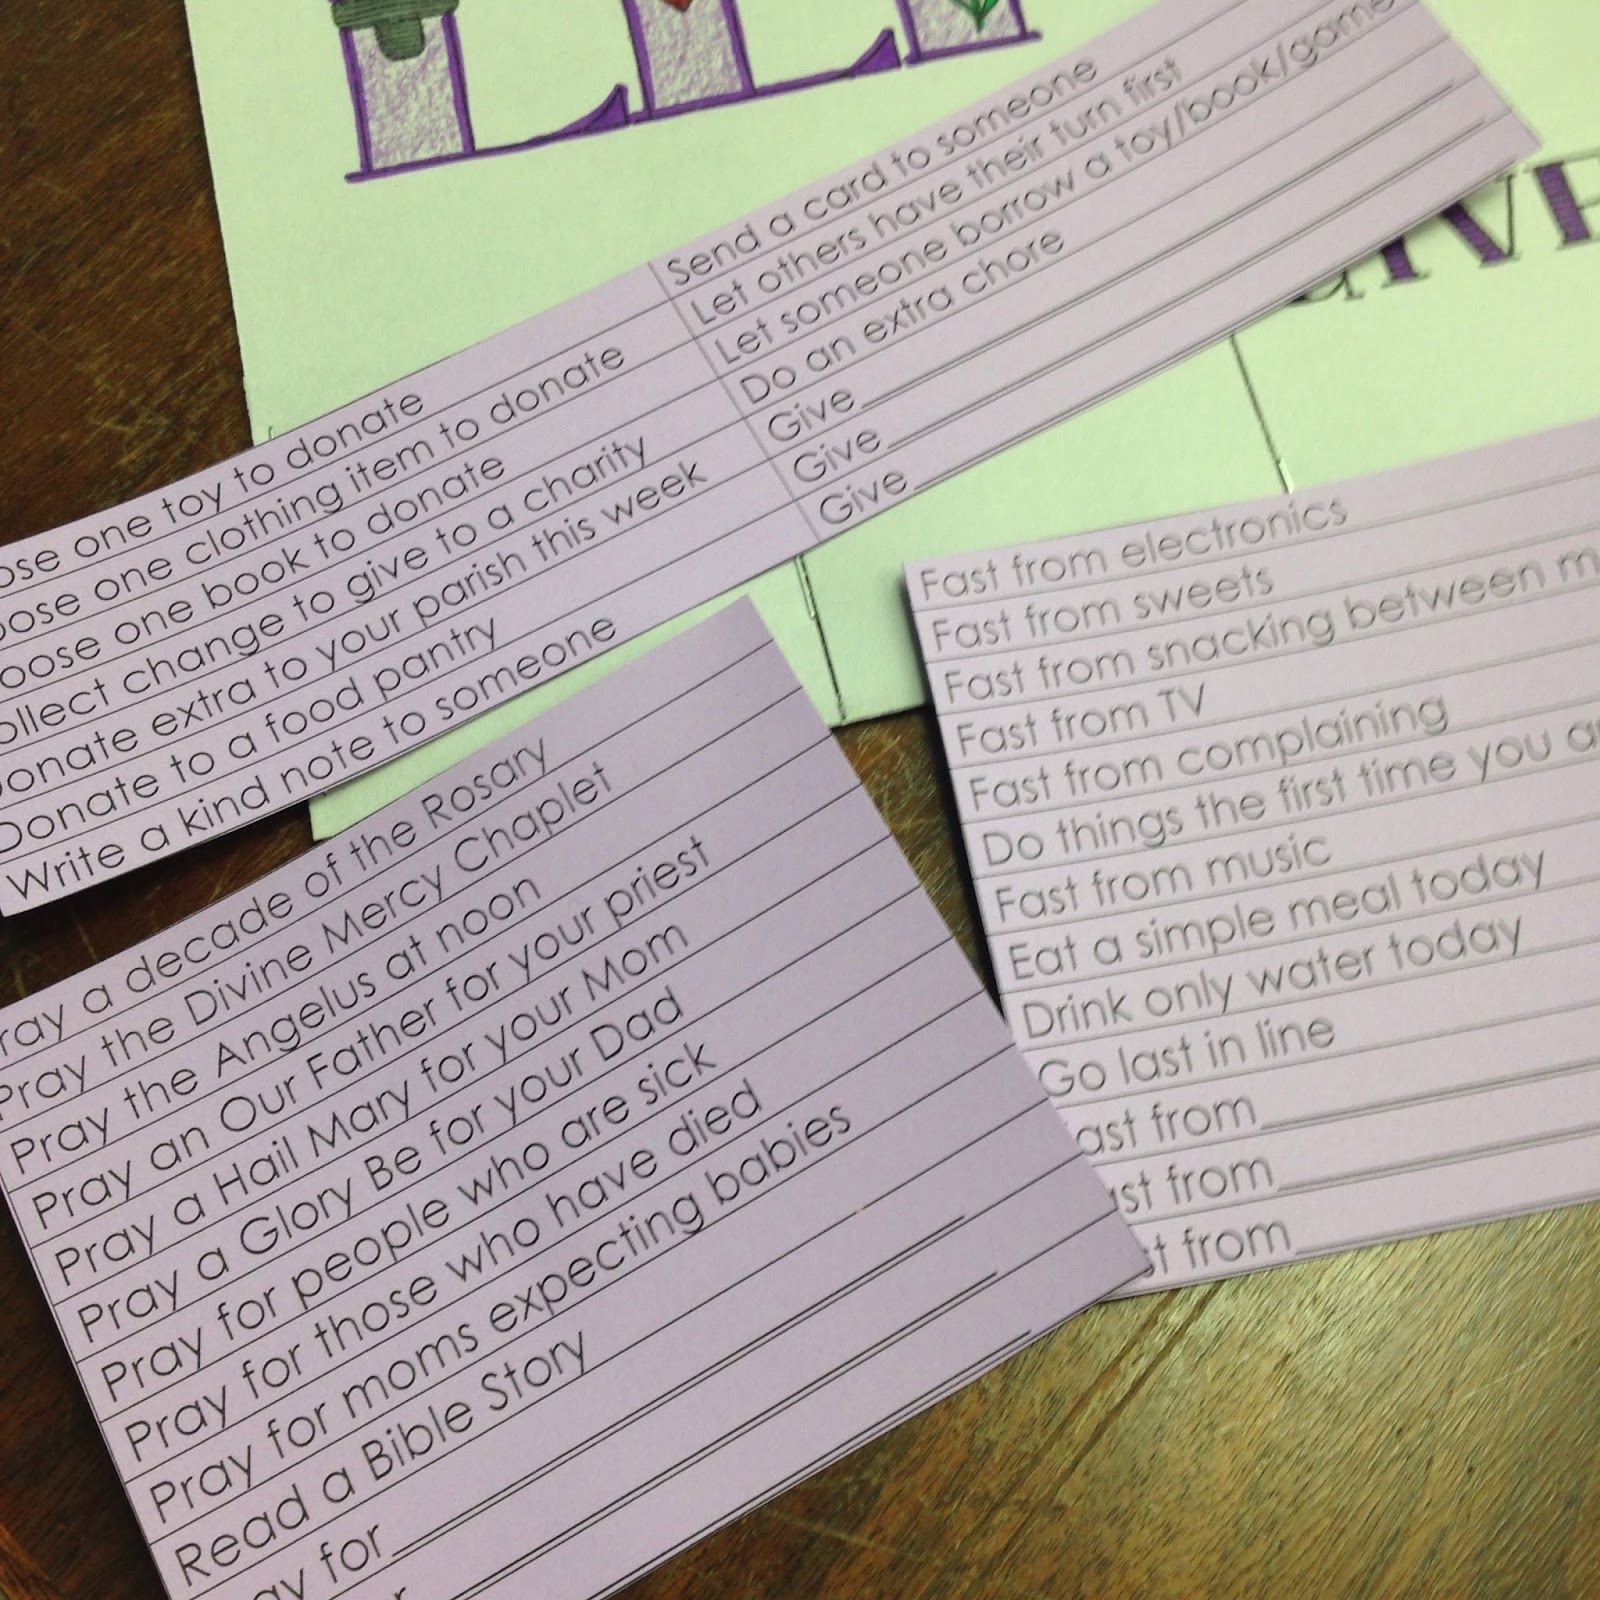 one toy to donate
one clothing item to donate
one book to donate
change to give to a charity
extra to your parish this week
Donate to a food pantry
Write a kind note to someone
Send a card to someone
Let others have their turn first
Let someone borrow a toy/book/game
Do an extra chore
Give
Give
Give
Pray a decade of the Rosary
Pray the Divine Mercy Chaplet
Pray the Angelus at noon
Pray an Our Father for your priest
Pray a Hail Mary for your Mom
Pray a Glory Be for your Dad
Pray for people who are sick
Pray for those who have died
Pray for moms expecting babies
Read a Bible Story
for
Fast from electronics
Fast from sweets
Fast from snacking between
Fast from TV
Fast from complaining
Do things the first time you
Fast from music
Eat a simple meal today
Drink only water today
Go last in line
from
from
from